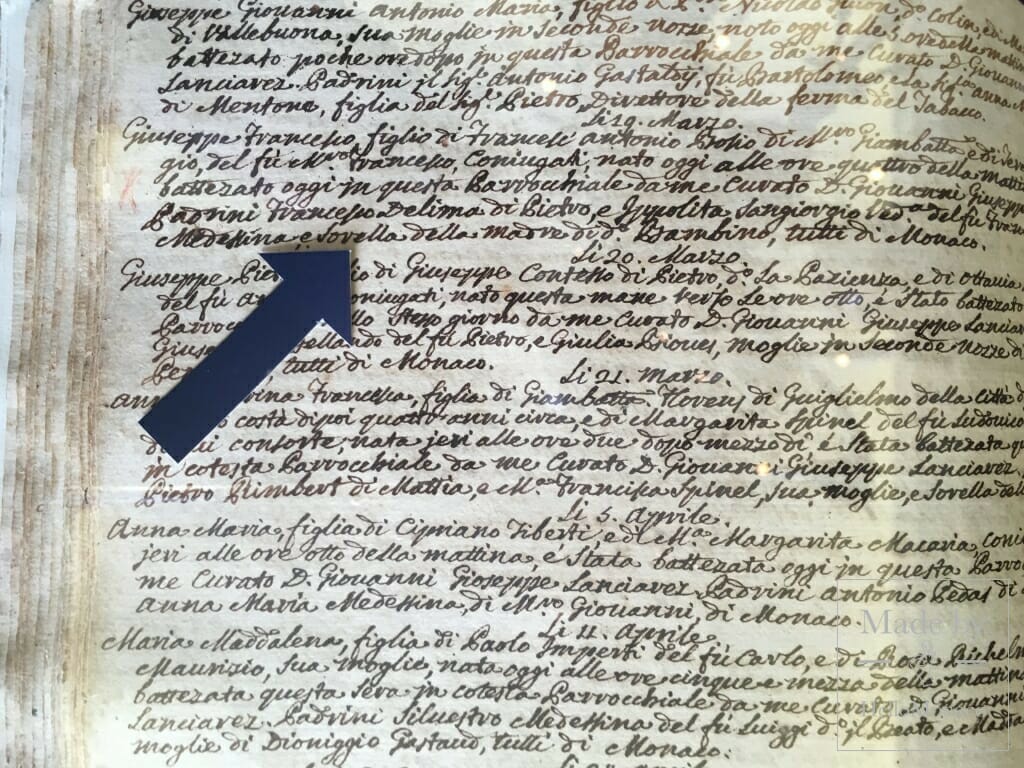 Giuseppe Giovanni Antonio Maria, figlio di Nicolao d.º Colin, e di
di Vallebuona, sua moglie in seconde nozze, nato oggi alle 5. ore della mattina
battezato poche ore dopo in questa Parrocchiale da me Curato D. Giovanni
Lanciarez. Padrini il Sig.r Antonio Gastaldy, fù Bartolomeo e la Sig.ra Anna
di Mentone, figlia del Sig.r Pietro, Direttore della ferma del Tabaco.
Li 19. Marzo.
Giuseppe Francesco, figlio di Antonio Bosio di M.ro Giambatta, e di
gio, del fù M.ro Francesco, Coniugati, nato oggi alle ore quattro della mattina
battezato oggi in questa Parrocchiale da me Curato D. Giovanni Giuseppe
Padrini Francesco Delima di Pietro, e Ippolita Sangiorgio Ved.a del fù Franc
Medessina e Sorella della madre di d.º Bambino, tutti di Monaco.
Li 20. Marzo.
Giuseppe di Giuseppe Contesso di Pietro, d.º La Pazienza, e di Ottavia
del fù coniugati, nato questa mane verso le ore otto, è stato battezato
Parroc stesso giorno da me Curato D. Giovanni Giuseppe Lanciar
Gius del fù Pietro, e Giulia Bioves, moglie in seconde nozze di
tutti di Monaco.
Li 21. Marzo.
Francesca, figlia di Giambatta di Guiglielmo della Città d
costà dipoi quattro anni circa, e di Margarita Spinel del fù Ludovico
consorte, nata jeri alle ore due dopo mezzo dì è stata battezata
in cotesta Parrocchiale da me Curato D. Giovanni Giuseppe Lanciarez.
Pietro Rimbert di Mattia, e M.a Francisca Spinel, sua moglie, e Sorella
Li 5. Aprile.
Anna Maria, figlia di Cipriano Tiberti, e di M.a Margarita Macaria, coni
jeri alle ore otto della mattina, è stata battezata oggi in questa Parroc
me Curato D. Giovanni Gioseppe Lanciarez Padrini Antonio Pedas di
Anna Maria Medessina, di M.ro Giovanni, di Monaco.
Li 11. Aprile.
Maria Maddalena, figlia di Paolo Imperti del fù Carlo, e di Rosa
Maurizio, sua moglie, nata oggi alle ore cinque e mezza della mattina
battezata questa sera in cotesta Parrocchiale da me Curato D. Giovanni
Lanciarez Padrini Siluestro Medessina del fù Luiggi d.º il Beato, e
moglie di Dioniggio Gastaud, tutti di Monaco.
Aprile
Made in